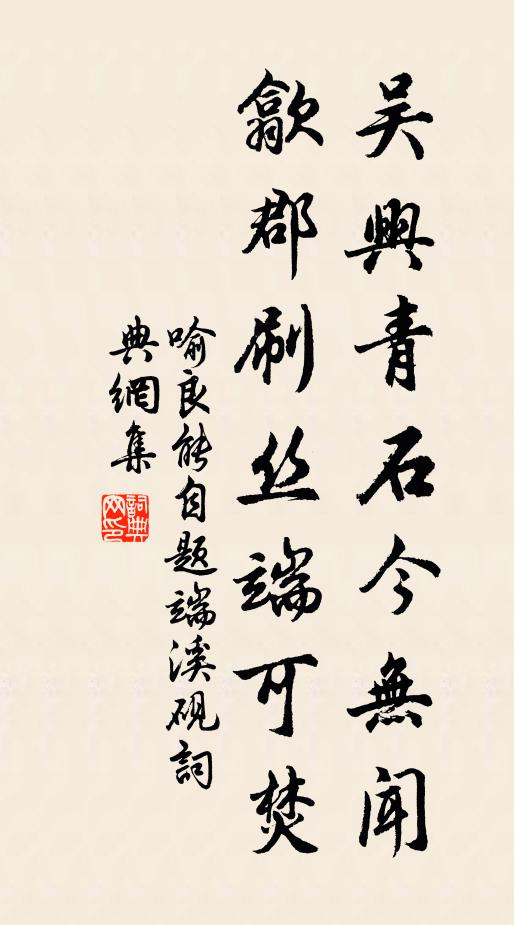 吴興青石今無聞
歙郡刷丝端可焚
喻良能自题端溪砚詞
典網集
詞典網印